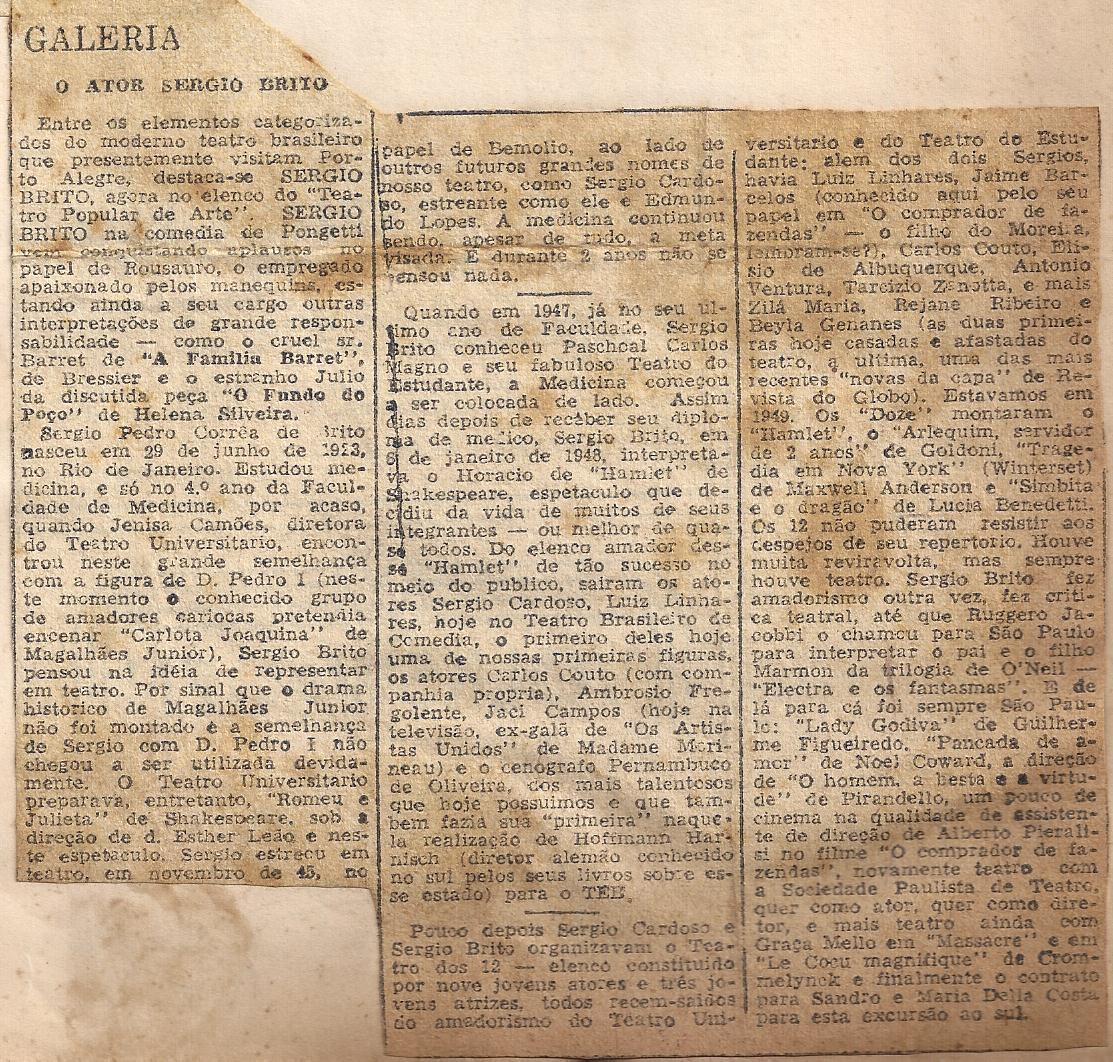 GALERIA
O ATOR SERGIO BRITO
Entre os elementos categoriza-
dos do moderno teatro brasileiro
que presentemente visitam Por-
to Alegre, destaca-se SERGIO
BRITO, agora no elenco do "Tea-
tro Popular de Arte". SERGIO
BRITO na comedia de Pongetti
vem conquistando aplausos no
papel de Rousauro, o empregado
apaixonado pelos manequins, es-
tando ainda a seu cargo outras
interpretações de grande respon-
sabilidade — como o cruel sr.
Barret de "A Familia Barret",
de Bressier e o estranho Julio
da discutida peça "O Fundo do
Poço" de Helena Silveira.
Sergio Pedro Corrêa de Brito
nasceu em 29 de junho de 1923,
no Rio de Janeiro. Estudou me-
dicina, e só no 4.º ano da Facul-
dade de Medicina, por acaso,
quando Jenisa Camões, diretora
do Teatro Universitario, encon-
trou neste grande semelhança
com a figura de D. Pedro I (nes-
te momento o conhecido grupo
de amadores cariocas pretendia
encenar "Carlota Joaquina" de
Magalhães Junior), Sergio Brito
pensou na idéia de representar
em teatro. Por sinal que o drama
historico de Magalhães Junior
não foi montado e a semelhança
de Sergio com D. Pedro I não
chegou a ser utilizada devida-
mente. O Teatro Universitario
preparava, entretanto, "Romeu e
Julieta" de Shakespeare, sob a
direção de d. Esther Leão e nes-
te espetaculo. Sergio estreou em
teatro, em novembro de 45, no
papel de Bemolio, ao lado de
outros futuros grandes nomes de
nosso teatro, como Sergio Cardo-
so, estreante como ele e Edmun-
do Lopes. A medicina continuou
sendo, apesar de tudo, a meta
visada. E durante 2 anos não se
pensou nada.
Quando em 1947, já no seu ul-
timo ano de Faculdade, Sergio
Brito conheceu Paschoal Carlos
Magno e seu fabuloso Teatro do
Estudante, a Medicina começou
a ser colocada de lado. Assim
dias depois de recéber seu diplo-
ma de medico, Sergio Brito, em
6 de janeiro de 1948, interpreta-
va o Horacio de "Hamlet" de
Shakespeare, espetaculo que de-
cidiu da vida de muitos de seus
integrantes — ou melhor de qua-
se todos. Do elenco amador des-
se "Hamlet" de tão sucesso no
meio do publico, sairam os ato-
res Sergio Cardoso, Luiz Linha-
res, hoje no Teatro Brasileiro de
Comedia, o primeiro deles hoje
uma de nossas primeiras figuras,
os atores Carlos Couto (com com-
panhia propria), Ambrosio Fre-
golente, Jaci Campos (hoje na
televisão, ex-galã de "Os Artis-
tas Unidos" de Madame Mori-
neau) e o cenógrafo Pernambuco
de Oliveira, dos mais talentosos
que hoje possuimos e que tam-
bem fazia sua "primeira" naque-
la realização de Hoffmann Har-
nisch (diretor alemão conhecido
no sul pelos seus livros sobre es-
se estado) para o TEB.
Pouco depois Sergio Cardoso e
Sergio Brito organizavam o Tea-
tro dos 12 — elenco constituido
por nove jovens atores e três jo-
vens atrizes, todos recem-saidos
do amadorismo do Teatro Uni-
versitario e do Teatro do Estu-
dante: alem dos dois Sergios,
havia Luiz Linhares, Jaime Bar-
celos (conhecido aqui pelo seu
papel em "O comprador de fa-
zendas" — o filho do Moreira,
lembram-se?), Carlos Couto, Eli-
sio de Albuquerque, Antonio
Ventura, Tarcizio Zanotta, e mais
Zilá Maria, Rejane Ribeiro e
Beyla Genanes (as duas primei-
ras hoje casadas e afastadas do
teatro, a ultima, uma das mais
recentes "novas da capa" de Re-
vista do Globo). Estavamos em
1949. Os "Doze" montaram o
"Hamlet", o "Arlequim, servidor
de 2 anos" de Goldoni, "Trage-
dia em Nova York" (Winterset)
de Maxwell Anderson e "Simbita
e o dragão" de Lucia Benedetti.
Os 12 não puderam resistir aos
despejos de seu repertorio. Houve
muita reviravolta, mas sempre
houve teatro. Sergio Brito fez
amadorismo outra vez, fez criti-
ca teatral, até que Ruggero Ja-
cobbi o chamou para São Paulo
para interpretar o pai e o filho
Marmon da trilogia de O'Neil —
"Electra e os fantasmas". E de
lá para cá foi sempre São Pau-
lo: "Lady Godiva" de Guilher-
me Figueiredo, "Pancada de a-
mor" de Noel Coward, a direção
de "O homem, a besta e a virtu-
de" de Pirandello, um pouco de
cinema na qualidade de assisten-
te de direção de Alberto Pierali-
si no filme "O comprador de fa-
zendas", novamente teatro com
a Sociedade Paulista de Teatro,
quer como ator, quer como dire-
tor, e mais teatro ainda com
Graça Mello em "Massacre" e em
"Le Cocu magnifique" de Crom-
melynck e finalmente o contrato
para Sandro e Maria Della Costa
para esta excursão ao sul.